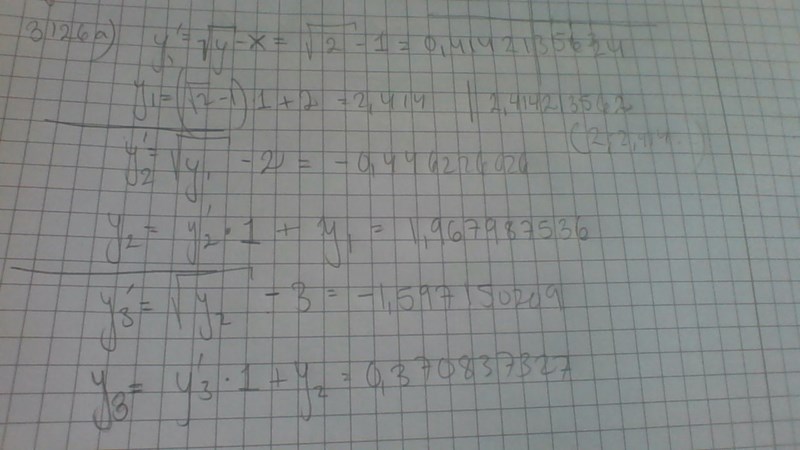 3126a) y₁' = √y - x = √2 - 1 = 0,4142135624
y₁ = (√2 - 1) · 1 + 2 = 2,414 | 2,414213562
(2, 2,414...)
y₂' = √y₁ - 2 = -0,446226026
y₂ = y₂' · 1 + y₁ = 1,967987536
y₃' = √y₂ - 3 = -1,597150209
y₃ = y₃' · 1 + y₂ = 0,370837327